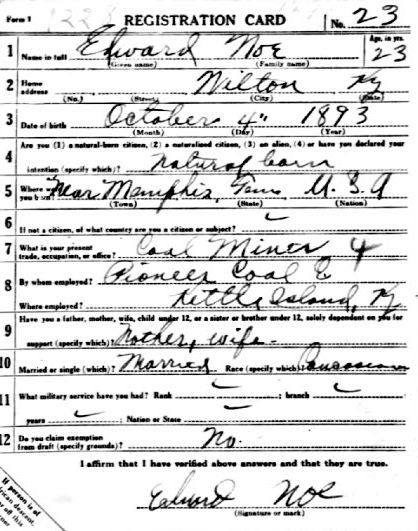 Form 1 REGISTRATION CARD No. 23
1 Name in full Edward Noe Age, in yrs. 23
(Given name) (Family name)
2 Home address Wilton Ky
(No.) (Street) (City) (State)
3 Date of birth October 4" 1893
(Month) (Day) (Year)
Are you (1) a natural-born citizen, (2) a naturalized citizen, (3) an alien, (4) or have you declared your
4 intention (specify which)? natural born
5 Where were you born? Near Memphis, Tenn U.S.A
(Town) (State) (Nation)
6 If not a citizen, of what country are you a citizen or subject?
7 What is your present trade, occupation, or office? Coal Miner 4
8 By whom employed? Pioneer Coal C
Where employed? Kettle Island, Ky
9 Have you a father, mother, wife, child under 12, or a sister or brother under 12, solely dependent on you for
support (specify which)? Mother, wife-
10 Married or single (which)? Married Race (specify which)? Caucasian
11 What military service have you had? Rank ; branch
years ; Nation or State
12 Do you claim exemption from draft (specify grounds)? No.
I affirm that I have verified above answers and that they are true.
Edward Noe
(Signature or mark)
If person is of
African descent,